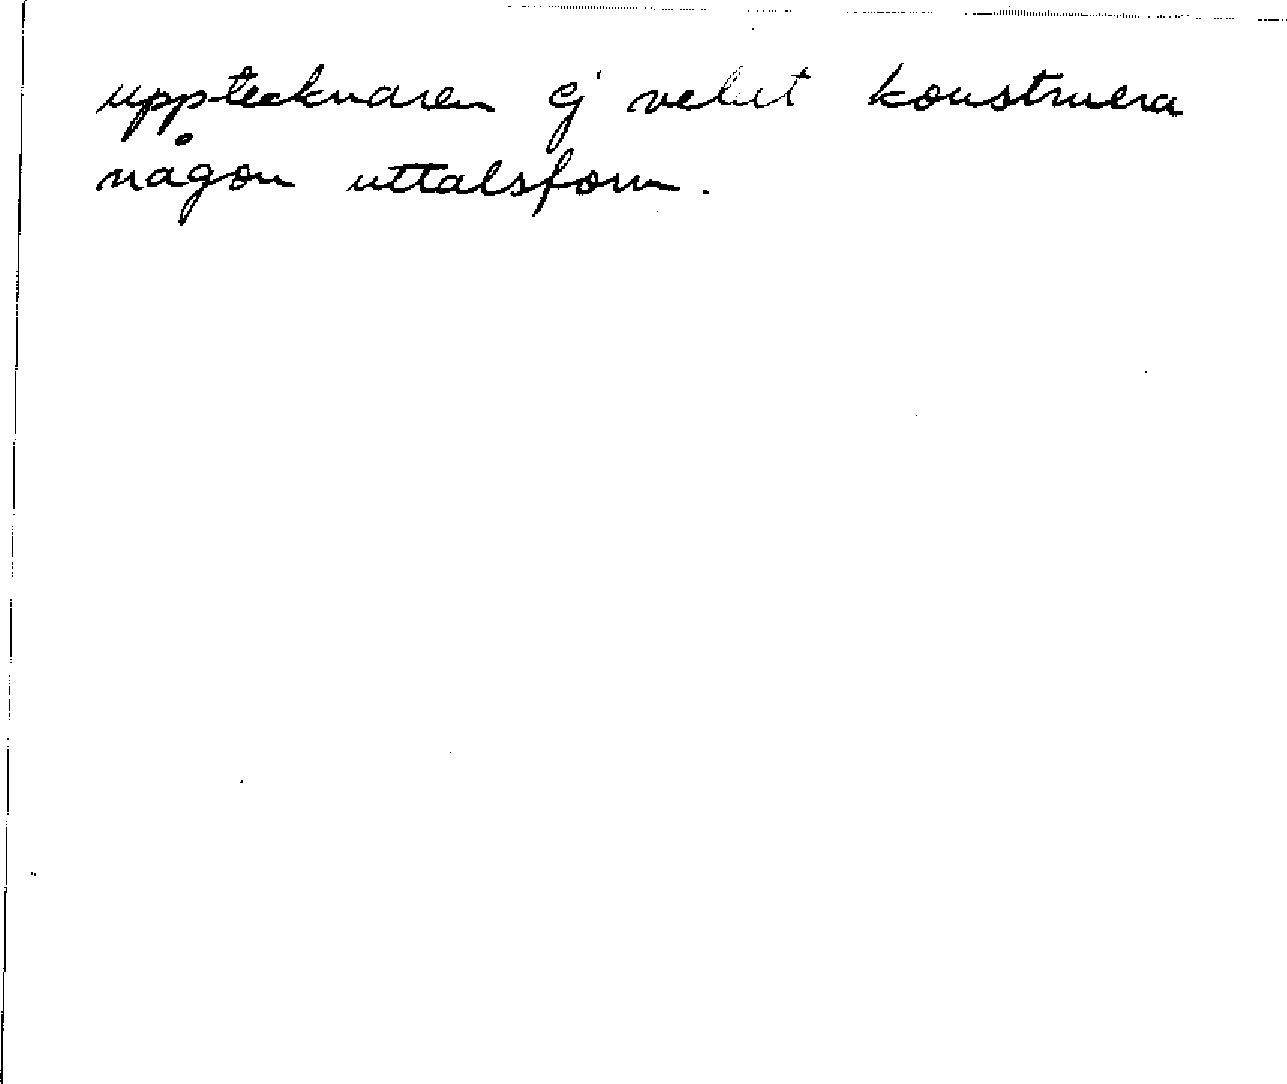 upptecknaren ej velat konstruera
någon uttalsform.